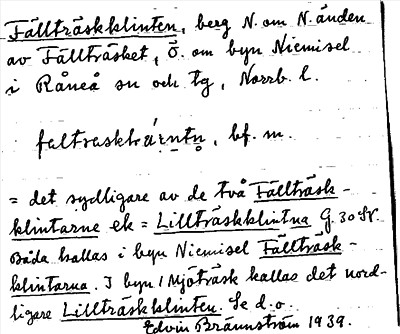 Fällträskklinten, berg N. om N. änden
av Fällträsket, Ö. om byn Niemisel
i Råneå sn och tg, Norrb. l.
bf. m.
= det sydligare av de två Fällträsk-
klintarne ek = Lillträskklintna G. 30 SV.
Båda kallas i byn Niemisel Fällträsk-
klintarna. I byn Mjöträsk kallas det nord-
ligare Lillträskklinten. Se d. o.
Edvin Brännström 1939.